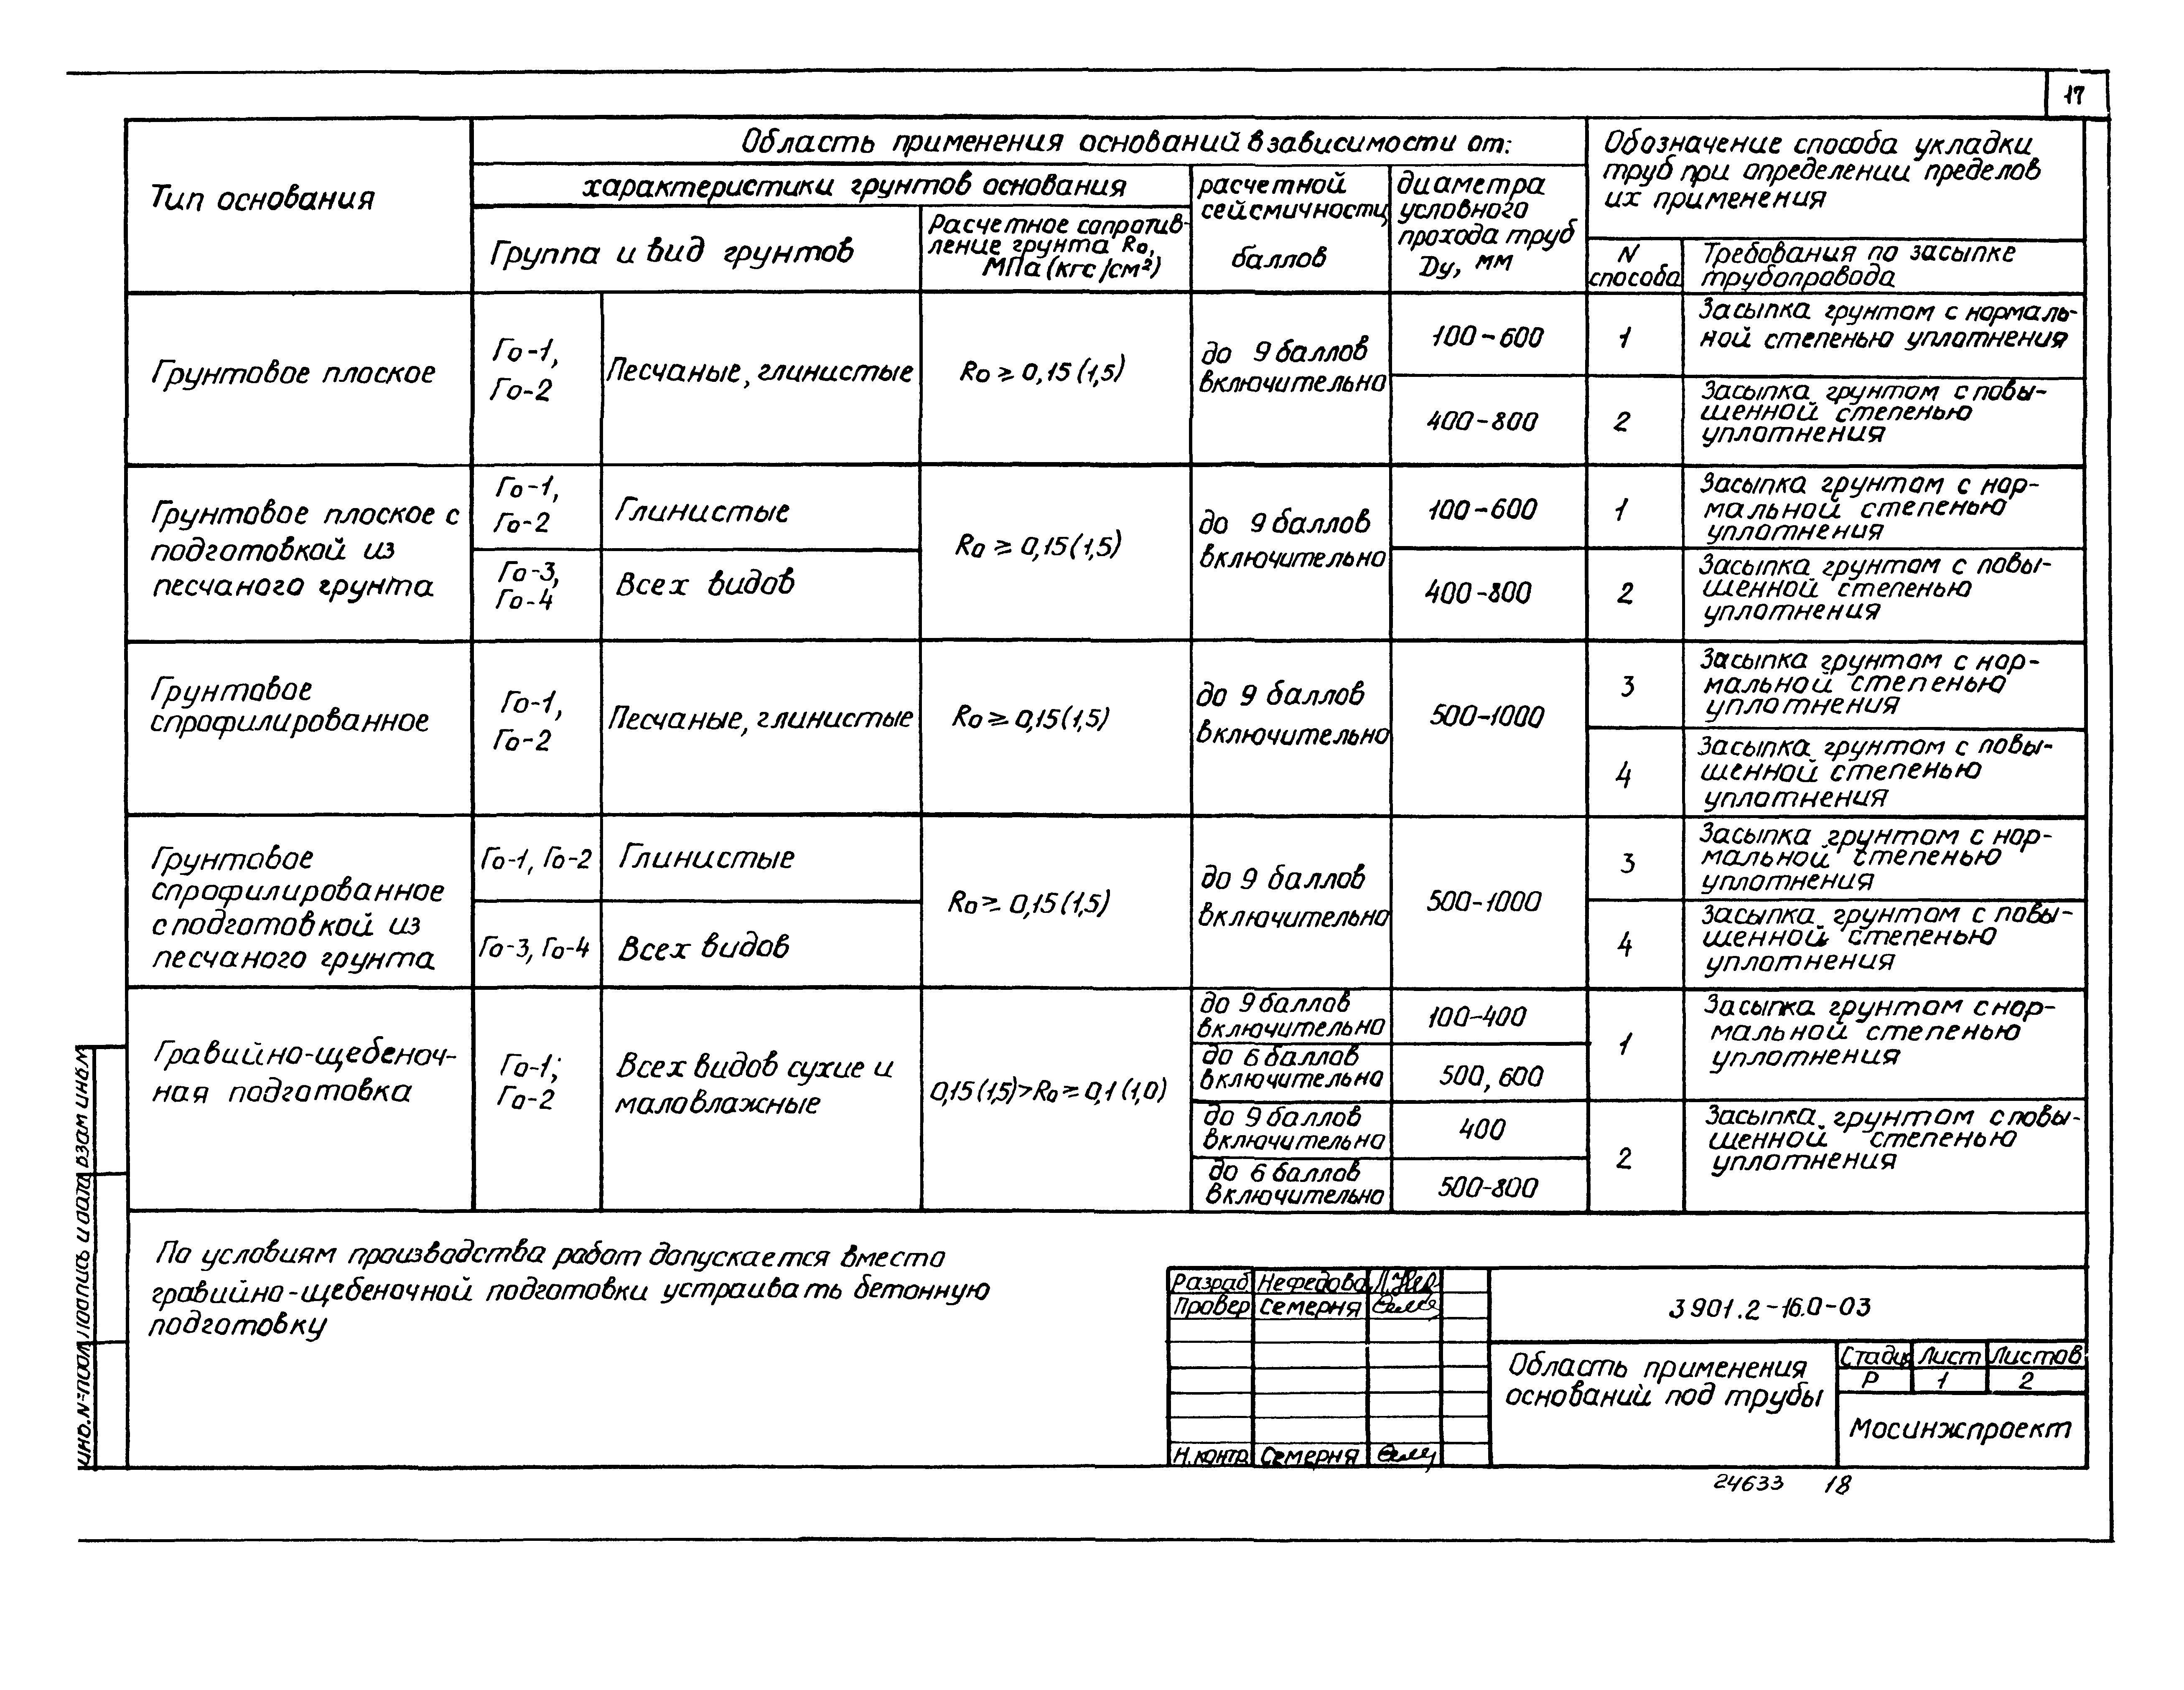 17
Область применения оснований в зависимости от:
Обозначение способа укладки
труб при определении пределов
их применения
Тип основания
характеристики грунтов основания
расчетной
сейсмичности
баллов
диаметра
условного
прохода труб
Dу, мм
Группа и вид грунтов
Расчетное сопротив-
ление грунта Rо,
МПа (кгс/см²)
N
способа
Требования по засыпке
трубопровода
Грунтовое плоское
Го-1,
Го-2
Песчаные, глинистые
Rо ≥ 0,15 (1,5)
до 9 баллов
включительно
100-600
1
Засыпка грунтом с нормаль-
ной степенью уплотнения
400-800
2
Засыпка грунтом с повы-
шенной степенью
уплотнения
Грунтовое плоское с
подготовкой из
песчаного грунта
Го-1,
Го-2
Глинистые
Го-3,
Го-4
Всех видов
Rо ≥ 0,15 (1,5)
до 9 баллов
включительно
100-600
1
Засыпка грунтом с нор-
мальной степенью
уплотнения
400-800
2
Засыпка грунтом с повы-
шенной степенью
уплотнения
Грунтовое
спрофилированное
Го-1,
Го-2
Песчаные, глинистые
Rо ≥ 0,15 (1,5)
до 9 баллов
включительно
500-1000
3
Засыпка грунтом с нор-
мальной степенью
уплотнения
4
Засыпка грунтом с повы-
шенной степенью
уплотнения
Грунтовое
спрофилированное
с подготовкой из
песчаного грунта
Го-1, Го-2
Глинистые
Го-3, Го-4
Всех видов
Rо ≥ 0,15 (1,5)
до 9 баллов
включительно
500-1000
3
Засыпка грунтом с нор-
мальной степенью
уплотнения
4
Засыпка грунтом с повы-
шенной степенью
уплотнения
Гравийно-щебеноч-
ная подготовка
Го-1;
Го-2
Всех видов сухие и
маловлажные
0,15 (1,5) > Rо ≥ 0,1 (1,0)
до 9 баллов
включительно
100-400
до 6 баллов
включительно
500, 600
1
Засыпка грунтом с нор-
мальной степенью
уплотнения
до 9 баллов
включительно
400
до 6 баллов
включительно
500-800
2
Засыпка грунтом с повы-
шенной степенью
уплотнения
По условиям производства работ допускается вместо
гравийно-щебеночной подготовки устраивать бетонную
подготовку
Разраб Нефедова
Провер Семерня
Н.контр. Семерня
3 901.2-16.0-03
Область применения
оснований под трубы
Стадия Лист Листов
Р 1 2
Мосинжпроект
24633 18
Взам инв.№
Подпись и дата
Инв.№ подл